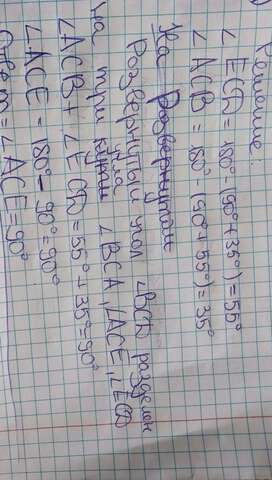 Решение:
∠ ECD = 180° - (90° + 35°) = 55°
∠ ACB = 180° - (90° + 55°) = 35°
На Развернутый
Развернутый угол ∠BCD разделен
на три угла ∠BCA, ∠ACE, ∠ECD
∠ACB + ∠ECD = 55° + 35° = 90°
∠ACE = 180° - 90° = 90°
Ответ = ∠ACE = 90°